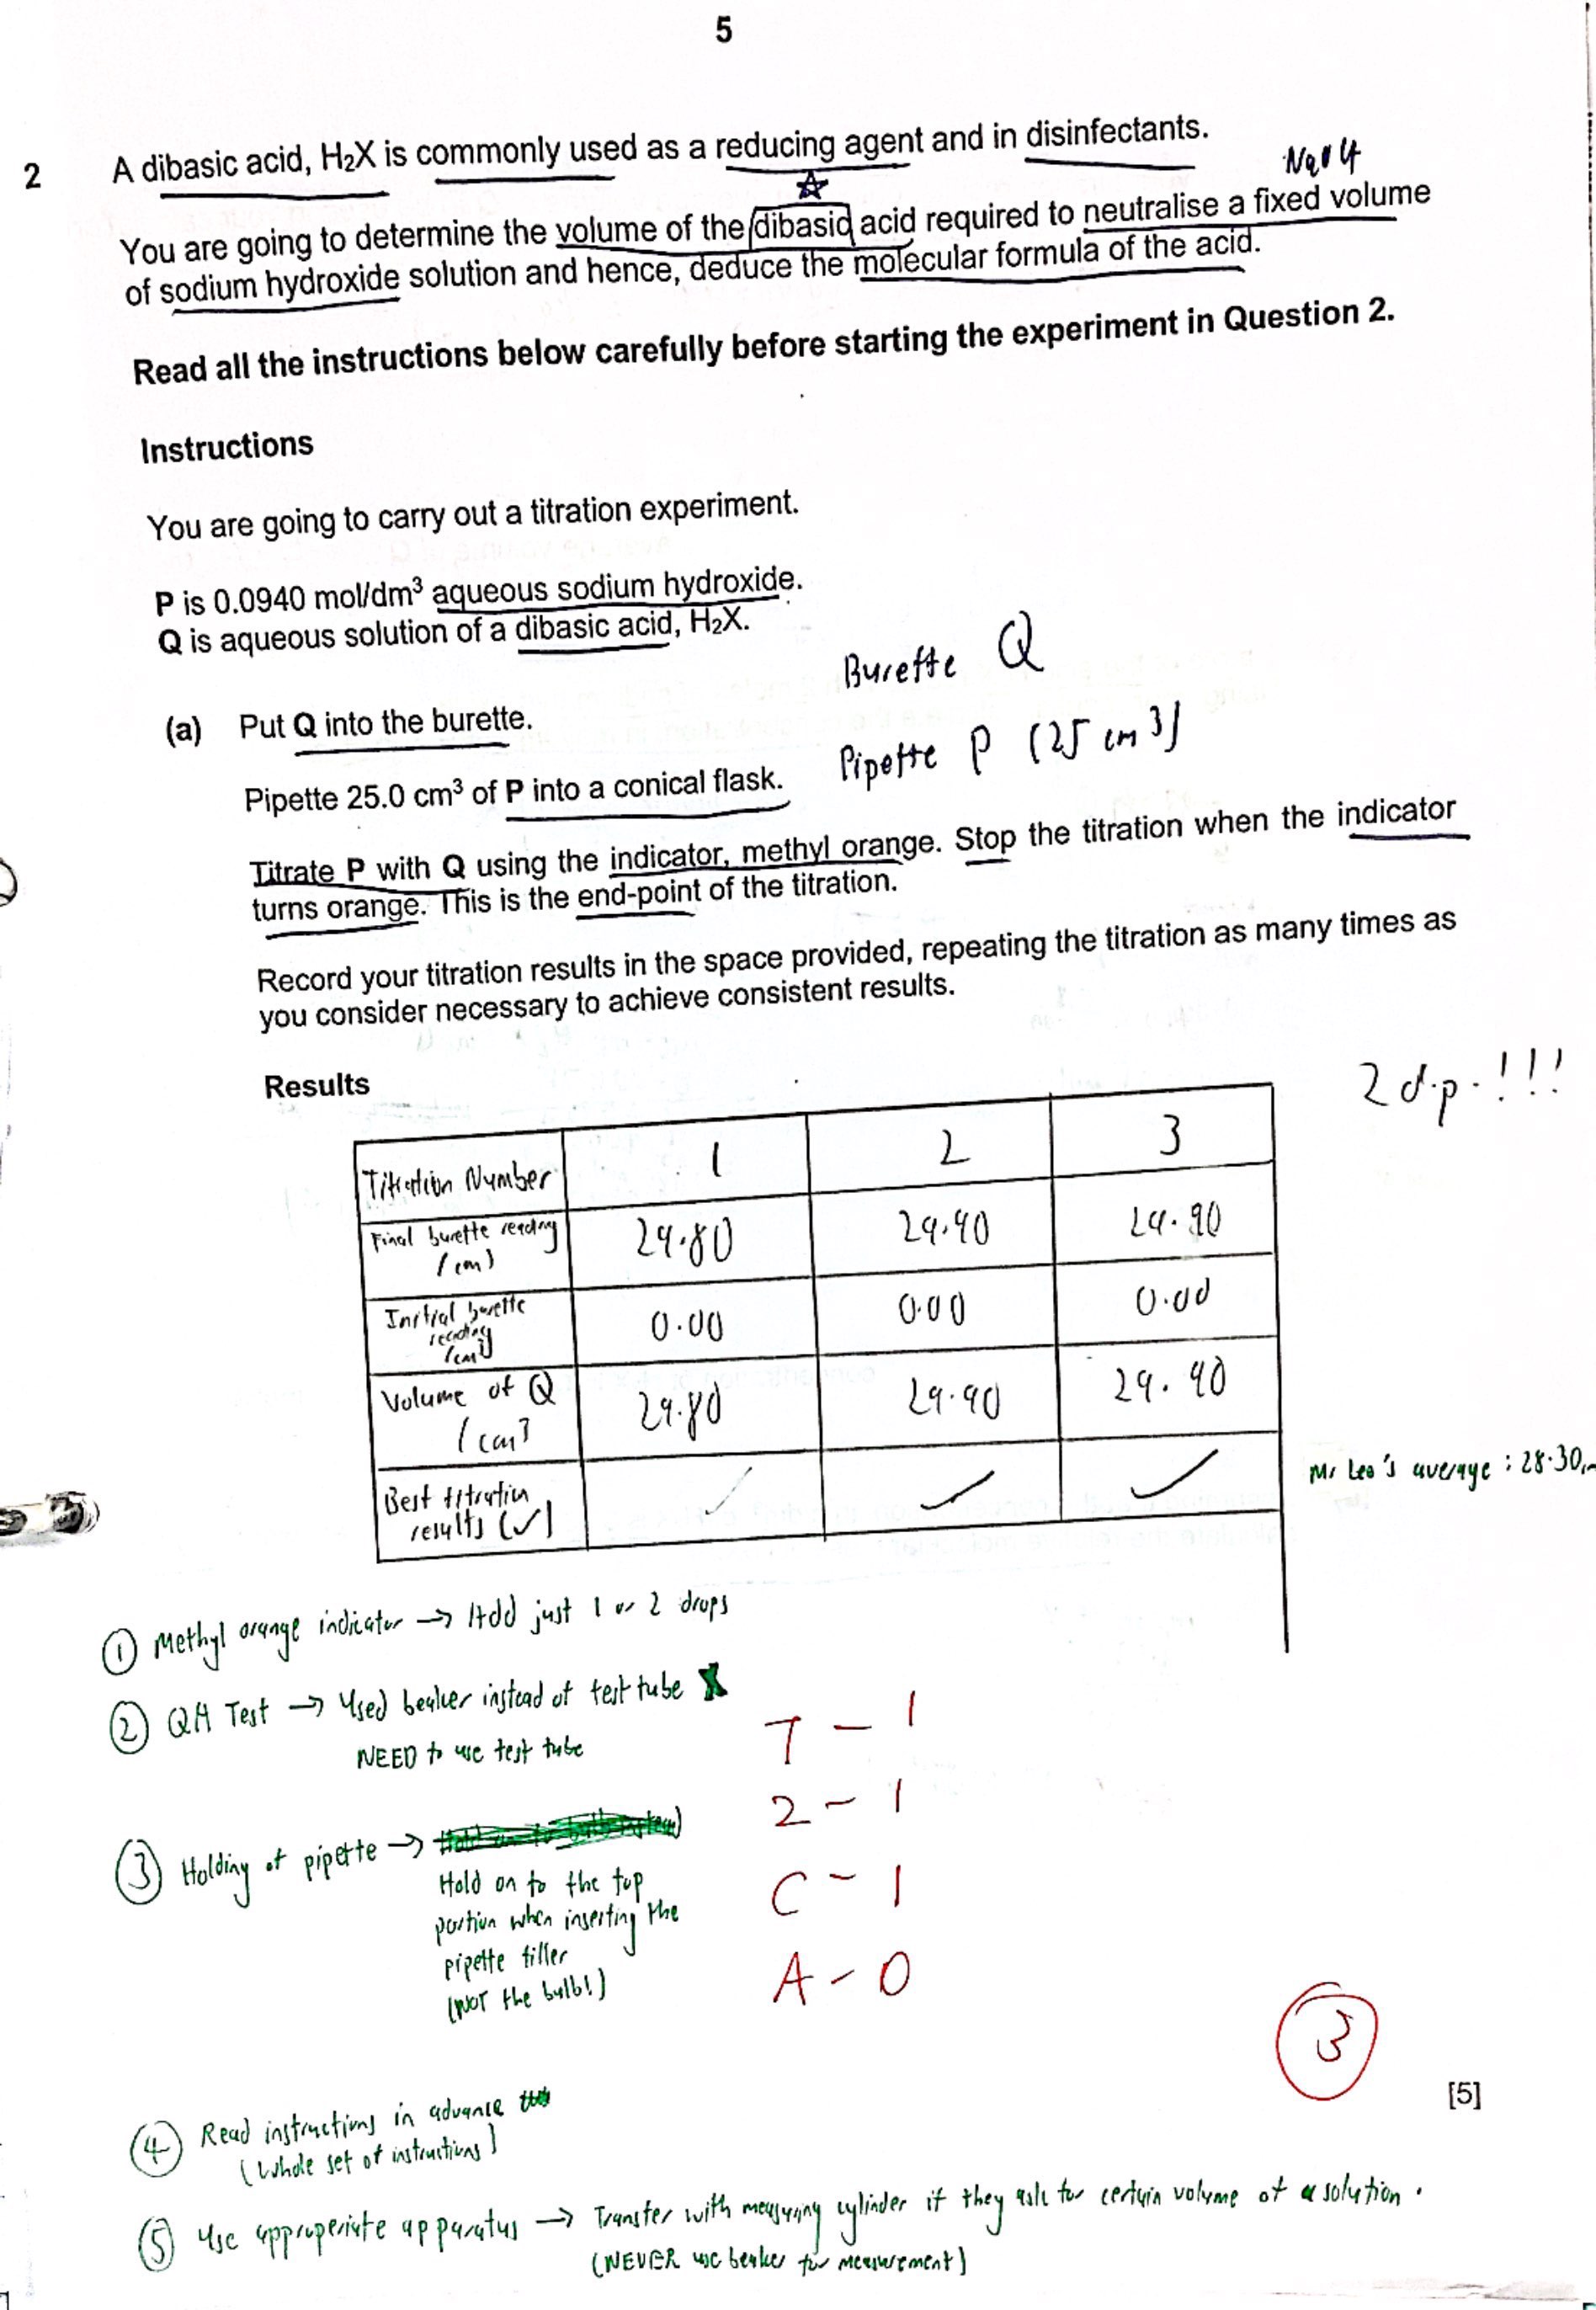 5
2 A dibasic acid, H₂X is commonly used as a reducing agent and in disinfectants.
NaOH
You are going to determine the volume of the dibasic acid required to neutralise a fixed volume
of sodium hydroxide solution and hence, deduce the molecular formula of the acid.
Read all the instructions below carefully before starting the experiment in Question 2.
Instructions
You are going to carry out a titration experiment.
P is 0.0940 mol/dm³ aqueous sodium hydroxide.
Q is aqueous solution of a dibasic acid, H₂X.
Burette Q
(a) Put Q into the burette.
Pipette P (25 cm³)
Pipette 25.0 cm³ of P into a conical flask.
Titrate P with Q using the indicator, methyl orange. Stop the titration when the indicator
turns orange. This is the end-point of the titration.
Record your titration results in the space provided, repeating the titration as many times as
you consider necessary to achieve consistent results.
Results
2 d.p. !!!
Titration Number 1 2 3
Final burette reading 29.80 29.90 29.90
/cm³
Initial burette 0.00 0.00 0.00
reading
/cm³
Volume of Q 29.80 29.90 29.90
/cm³
Best titration ✓ ✓ ✓
results (✓)
Mr Leo's average : 28.30
① Methyl orange indicator → Add just 1 or 2 drops
② QA Test → Used beaker instead of test tube X
NEED to use test tube
T - 1
2 - 1
C - 1
A - 0
③ Holding of pipette →
Hold on to the top
portion when inserting the
pipette filler
(NOT the bulb!)
3
[5]
④ Read instructions in advance
(Whole set of instructions)
⑤ Use approperiate apparatus → Transfer with measuring cylinder if they ask for certain volume of a solution.
(NEVER use beaker for measurement)